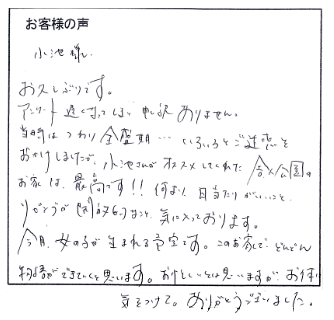 お客様の声
小池様
お久しぶりです。
アンケート遅くなってしまい申し訳ありません。
当時はつわり全盛期…いろいろとご迷惑を
おかけしましたが、小池さんがオススメしてくれた
お家は、最高です!!何より日当たりがいいこと、
リビングが気に入っております。
今月、女の子が生まれる予定です。このお家で、どんどん
思います。お忙しいとは思いますが、お体に
気をつけて。ありがとうございました。